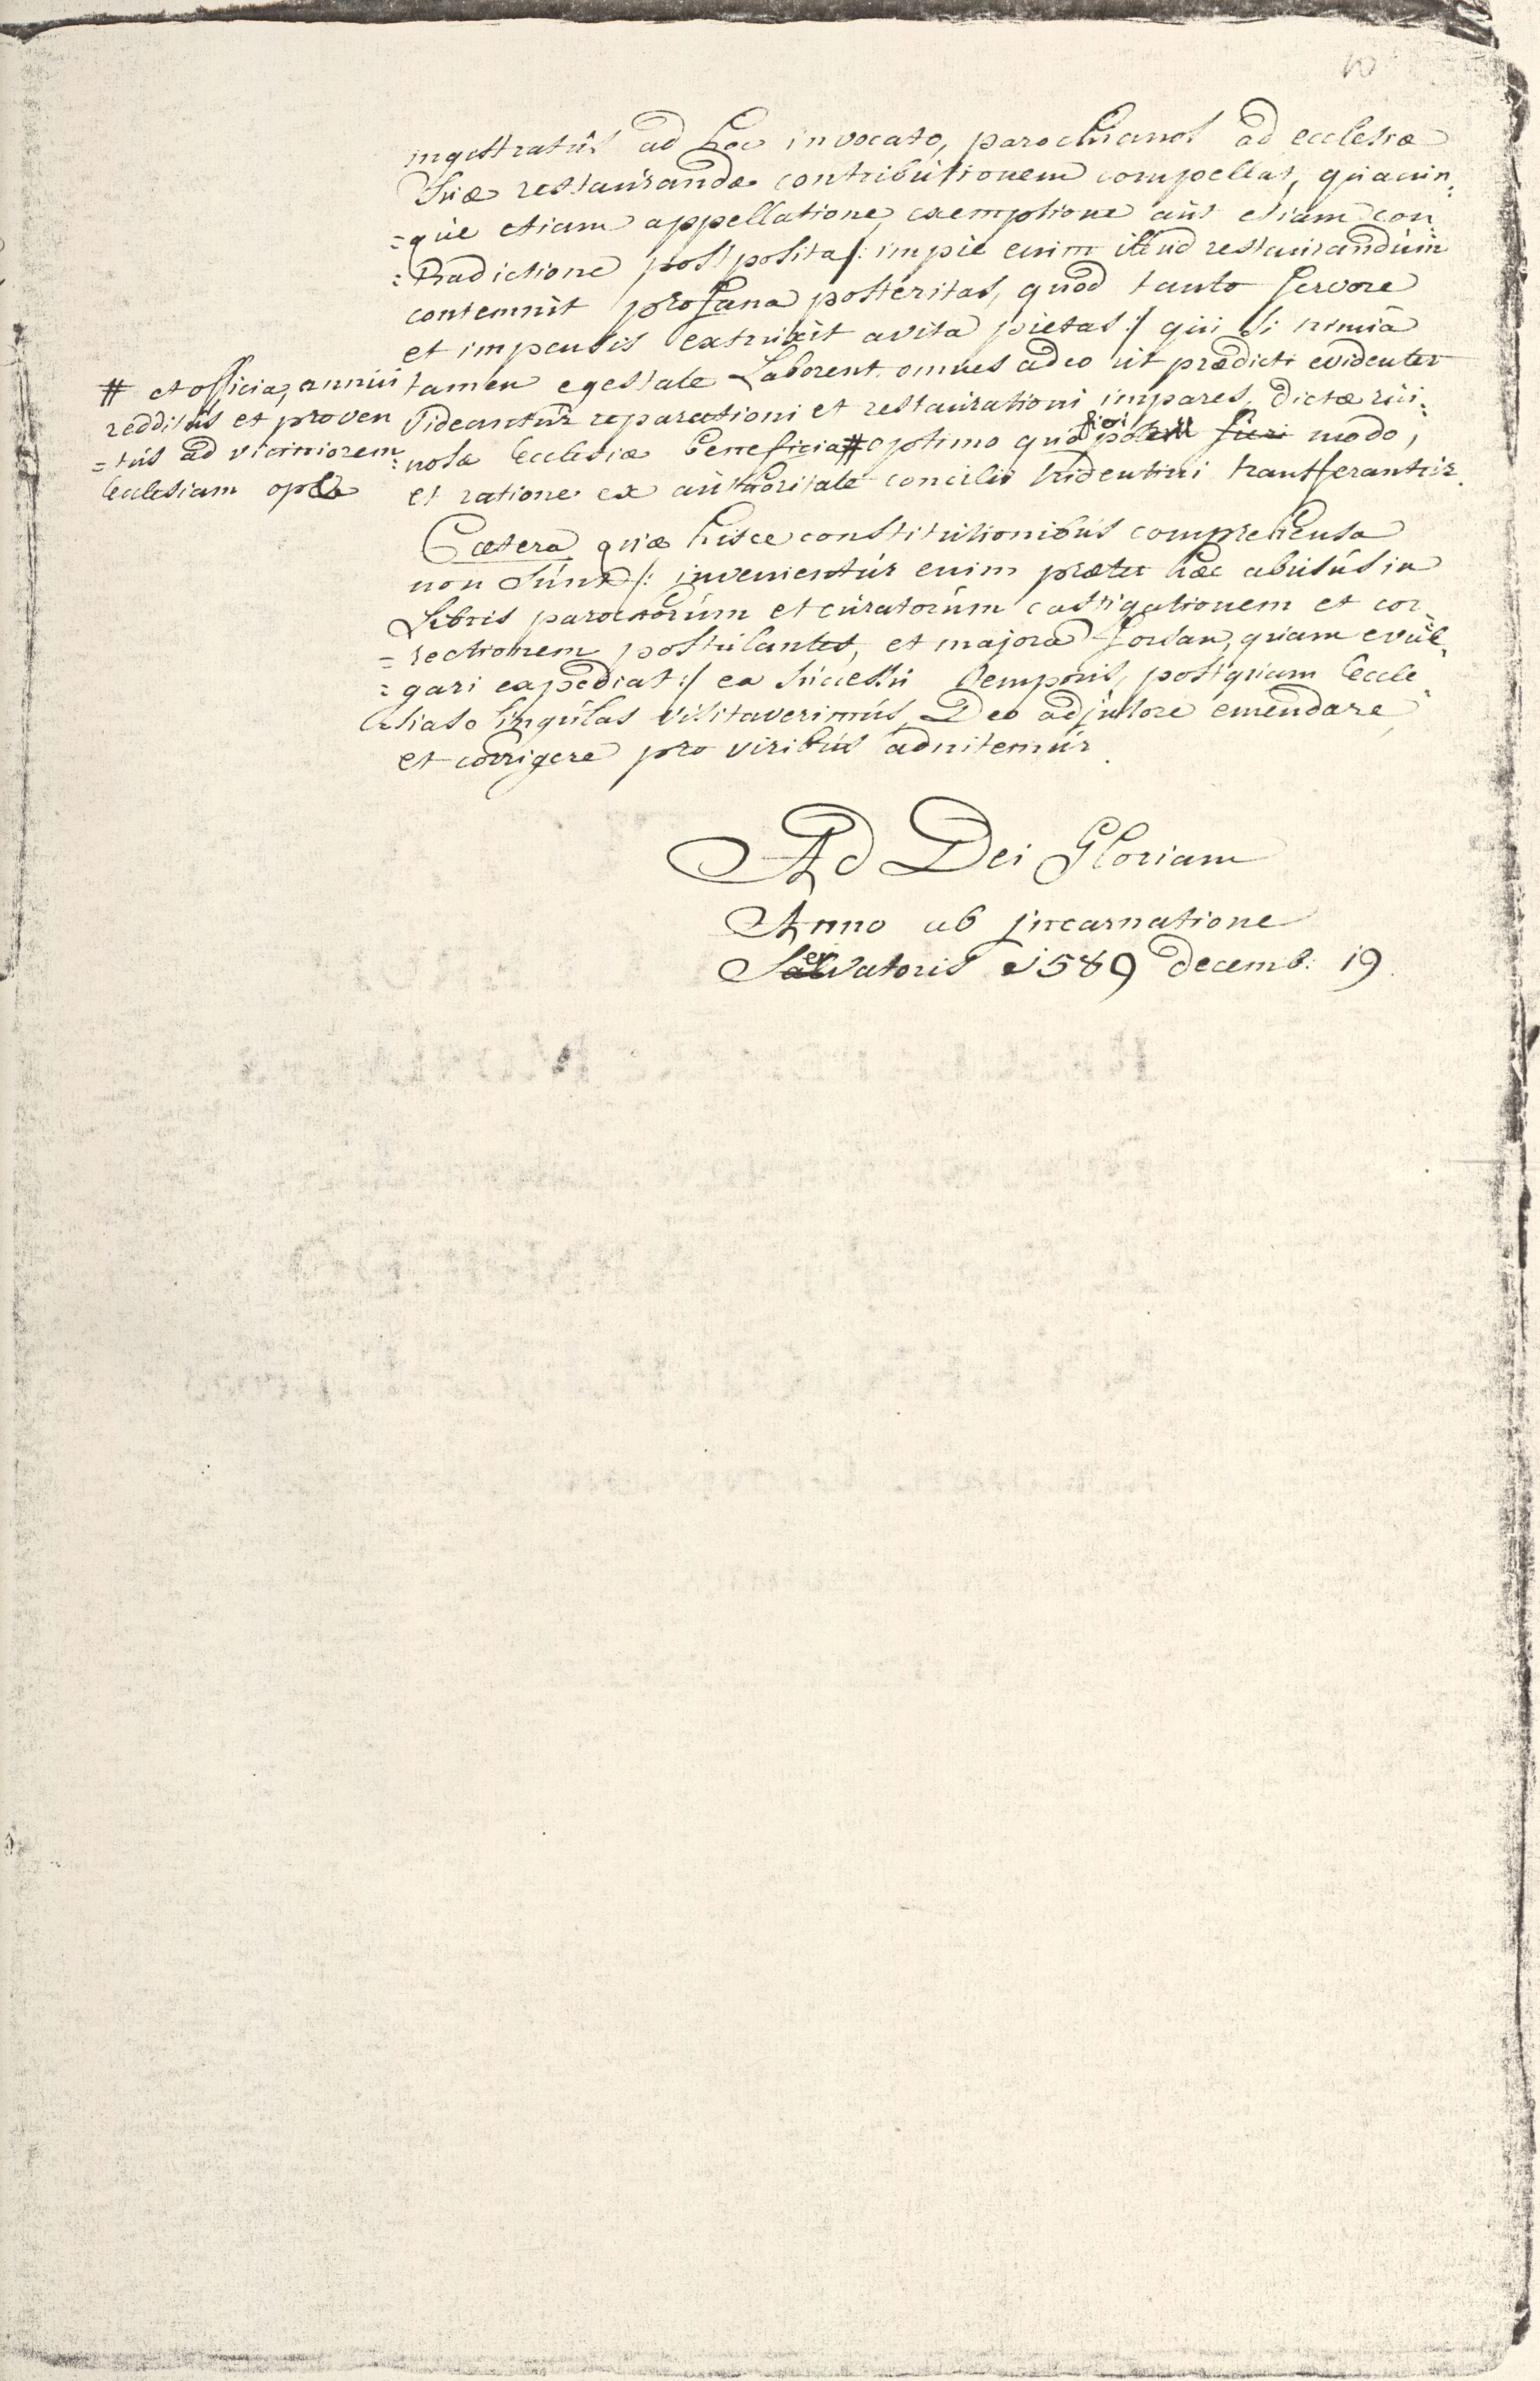 10
mgistratûs ad hoc invocato, parochianos ad ecclesiæ
suæ restaûrandæ contribûtionem compellat, quacun=
=qûe etiam appellatione, exemptione aût etiam con=
=tradictione postposita /: impie enim illud restaûrandûm
contemnit profana posteritas, quod tanto fervore
et impensis extruxit avita pietas :/ qui si nimiâ
tamen egestate Laborent omnes adeo ût prædicti evidenter
videantûr reparationi et restaûrationi impares, dictæ rûi=
=nosæ Ecclesiæ beneficia # optimo quo fieri potest fieri modo,
et ratione ex aûthoritate concilii tridentini transferantûr.
# et officia, annui
redditûs et proven
=tûs ad viciniorem
Ecclesiam
Cætera quæ hisce constitûtionibûs comprehensa
non sûnt /: invenientûr enim præter hæc abûsûs in
Libris parochorûm et cûratorûm castigationem et cor=
=rectionem postûlantes, et majora forsan, quam evûl=
=gari expediat :/ ea sûccessû temporis, postquam Eccle=
siaso singûlas visitaverimûs, Deo adjûtore emendare,
et corrigere pro viribûs adnitemûr.
Ad Dei Gloriam
Anno ab jncarnatione
Servatoris 1589 decemb: 19.